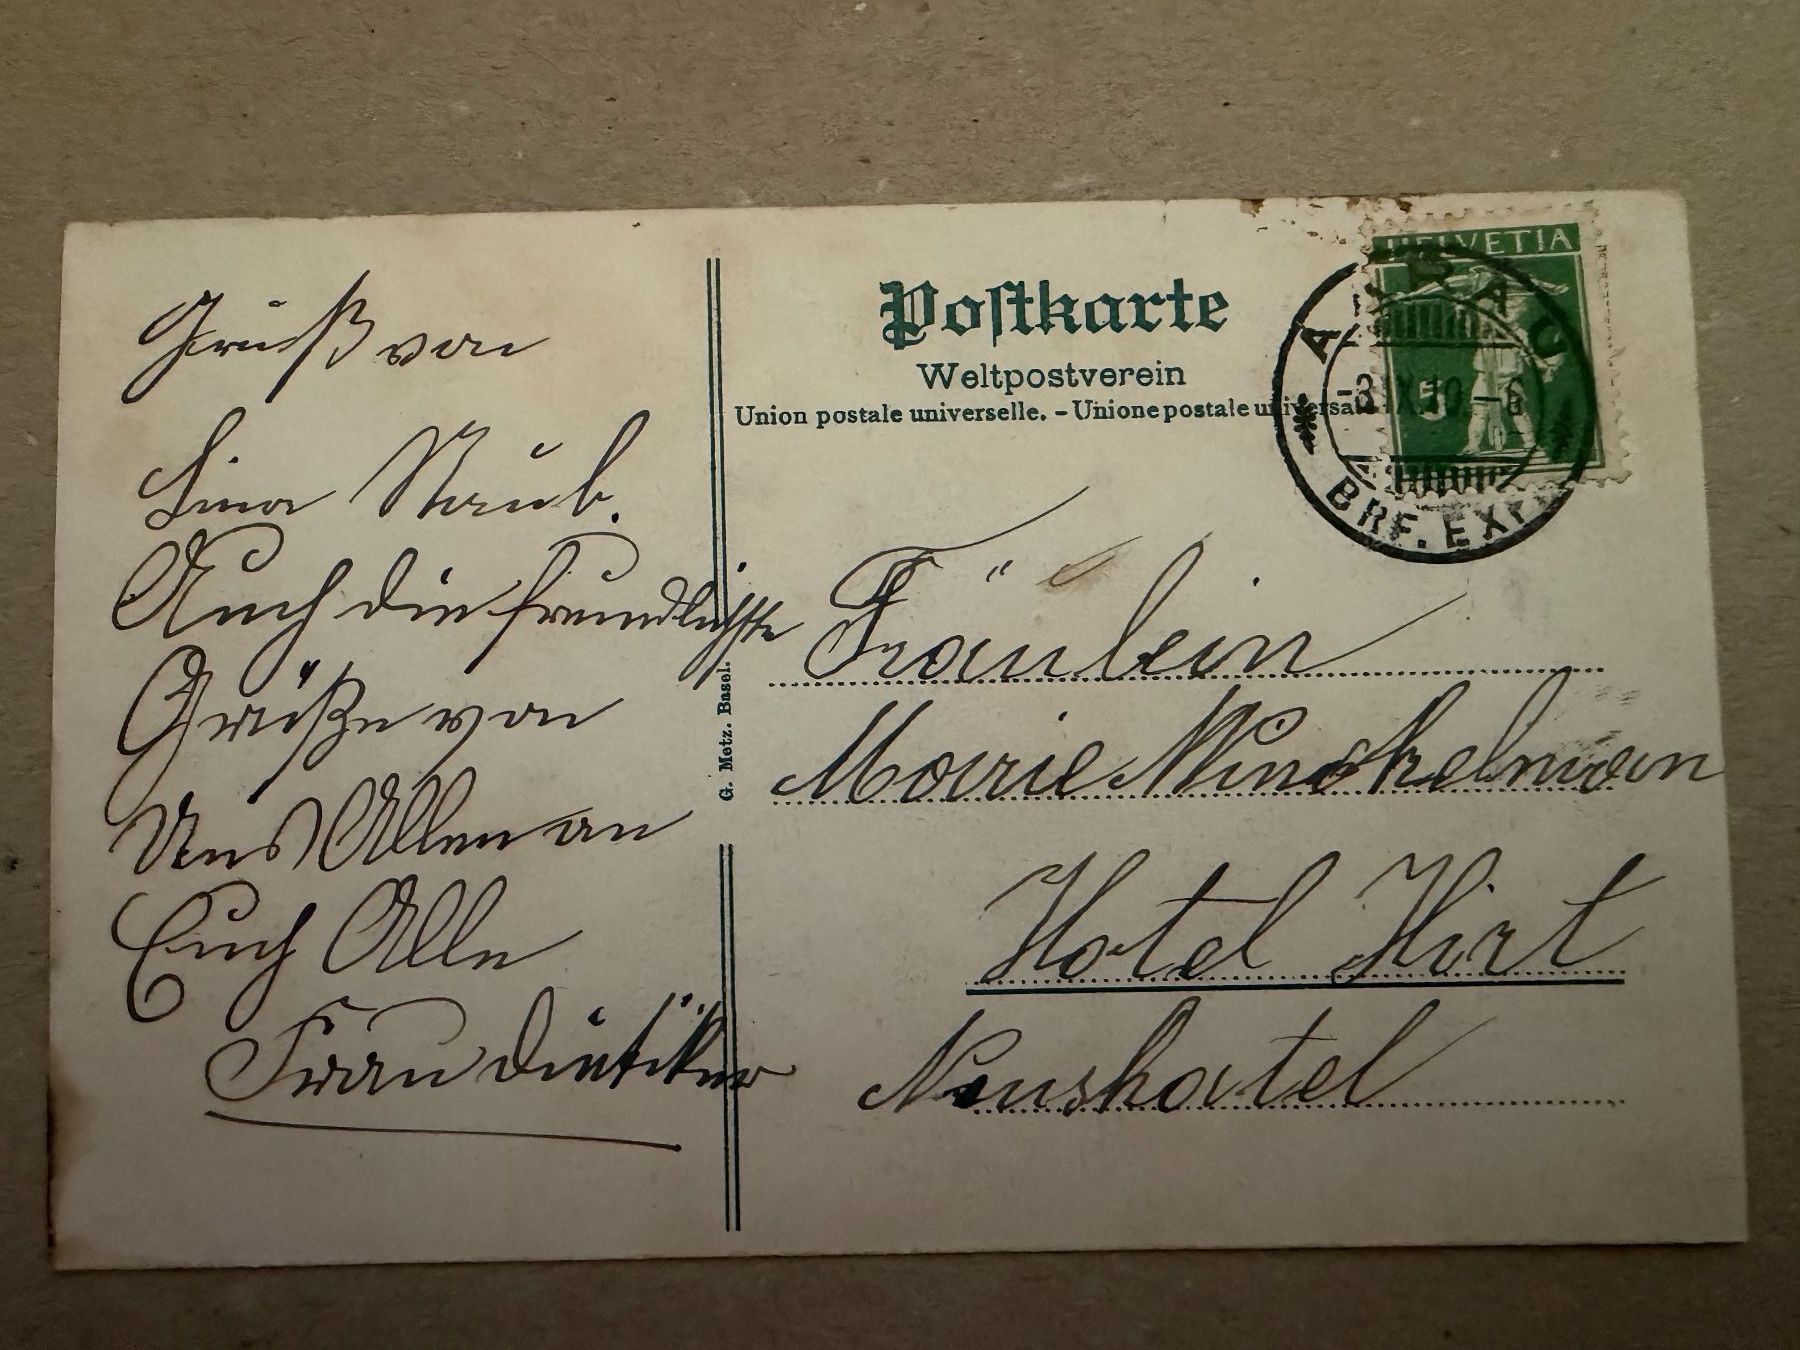 Gruß von
Lina Staub.
Auch die freundlichste
Grüße von
Uns Allen an
Euch Alle
Frau Dietiker
Postkarte
Weltpostverein
Union postale universelle. – Unione postale universale
G. Metz. Basel.
HELVETIA
5
AARAU
-3.IX.10.-6
BRF. EXP.
Fräulein
Marie Winckelman
Hotel Hirt
Neushatel